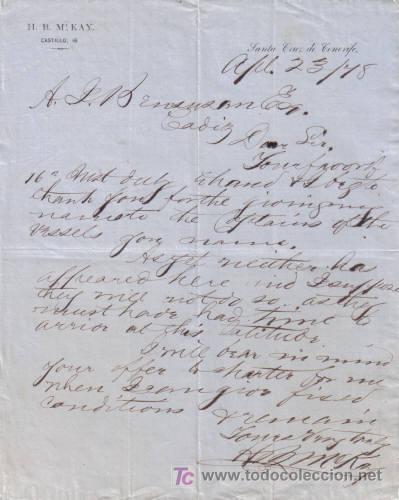 H. B. McKAY.
CASTILLO, 16
Santa Cruz de Tenerife,
Apl. 23/78
A. J. Bensusan Esq.
Cadiz
Dear Sir,
Your favor of
16th Inst duly to hand & I beg to
thank you for the giving my
name to the Captains of the
vessels you name.
As yet neither has
appeared here and I suppose
they will not do so as they
must have had time to
arrive at this latitude.
I will bear in mind
your offer to charter for me
when I can give fixed
conditions
I remain
Yours very truly
H B McKay
TC todocoleccion.net